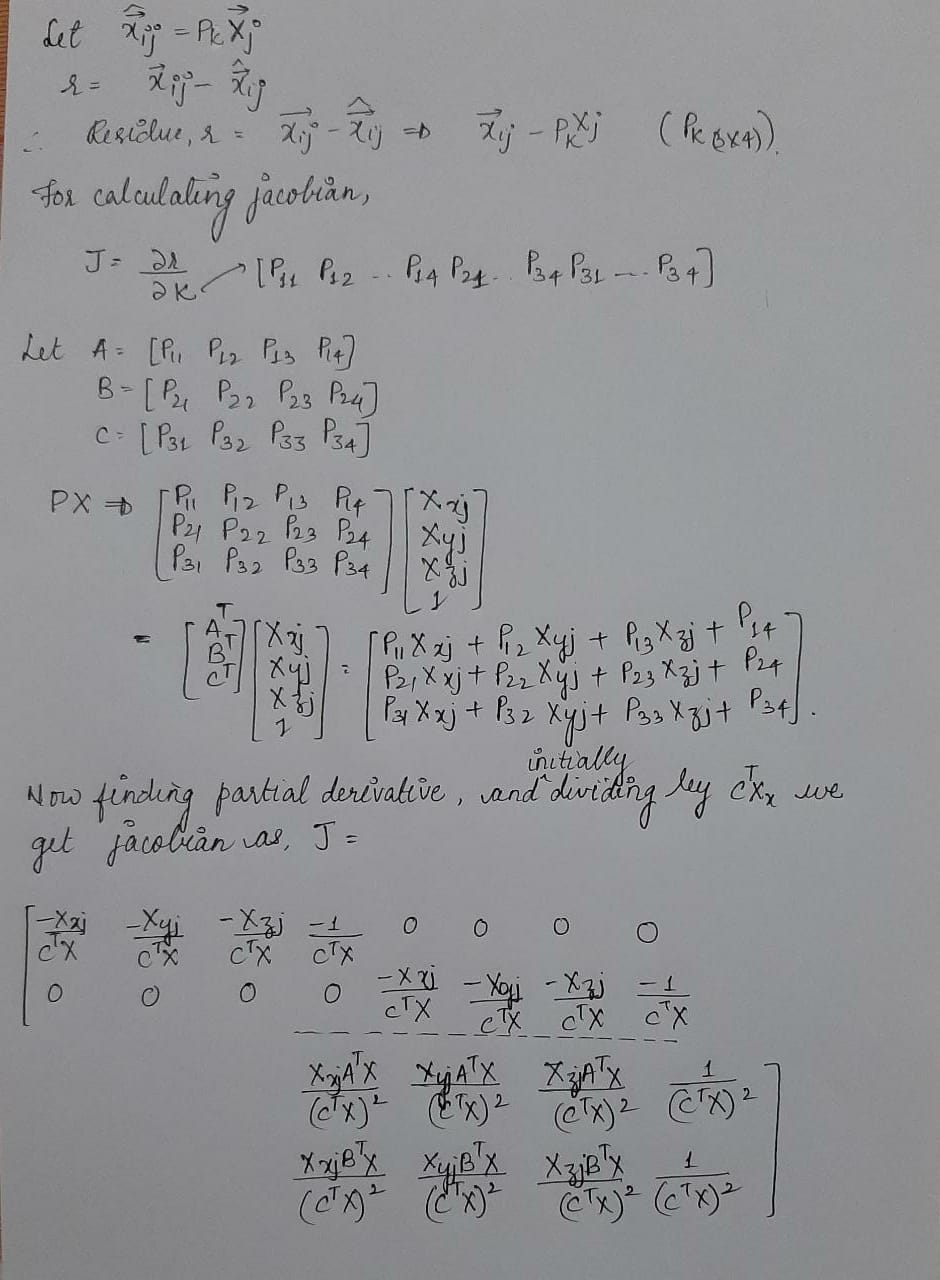 Let $\hat{\vec{x}}_{ij} = P_k \vec{X}_j$
r = $\vec{x}_{ij} - \hat{\vec{x}}_{ij}$
∴ Residue, r = $\vec{x}_{ij} - \hat{\vec{x}}_{ij}$ ⇒ $\vec{x}_{ij} - P_k X_j$ ($P_k$ 3×4)).
For calculating jacobian,
J = $\frac{\partial r}{\partial K}$ ↗ [P₁₁ P₁₂ .. P₁₄ P₂₁ .. P₃₄ P₃₁ --- P₃₄]
Let A = [P₁₁ P₁₂ P₁₃ P₁₄]
B = [P₂₁ P₂₂ P₂₃ P₂₄]
C = [P₃₁ P₃₂ P₃₃ P₃₄]
PX ⇒ $\begin{bmatrix} P_{11} & P_{12} & P_{13} & P_{14} \\ P_{21} & P_{22} & P_{23} & P_{24} \\ P_{31} & P_{32} & P_{33} & P_{34} \end{bmatrix} \begin{bmatrix} X_{xj} \\ X_{yj} \\ X_{zj} \\ 1 \end{bmatrix}$
= $\begin{bmatrix} A^T \\ B^T \\ C^T \end{bmatrix} \begin{bmatrix} X_{xj} \\ X_{yj} \\ X_{zj} \\ 1 \end{bmatrix} = \begin{bmatrix} P_{11} X_{xj} + P_{12} X_{yj} + P_{13} X_{zj} + P_{14} \\ P_{21} X_{xj} + P_{22} X_{yj} + P_{23} X_{zj} + P_{24} \\ P_{31} X_{xj} + P_{32} X_{yj} + P_{33} X_{zj} + P_{34} \end{bmatrix}$.
Now finding partial derivative, and initially dividing by $C^T X_x$ we
get jacobian as, J =
[ $\frac{-X_{xj}}{C^T X}$ $\frac{-X_{yj}}{C^T X}$ $\frac{-X_{zj}}{C^T X}$ $\frac{-1}{C^T X}$ 0 0 0 0
0 0 0 0 $\frac{-X_{xj}}{C^T X}$ $\frac{-X_{yj}}{C^T X}$ $\frac{-X_{zj}}{C^T X}$ $\frac{-1}{C^T X}$
$\frac{X_{xj} A^T X}{(C^T X)^2}$ $\frac{X_{yj} A^T X}{(C^T X)^2}$ $\frac{X_{zj} A^T X}{(C^T X)^2}$ $\frac{1}{(C^T X)^2}$
$\frac{X_{xj} B^T X}{(C^T X)^2}$ $\frac{X_{yj} B^T X}{(C^T X)^2}$ $\frac{X_{zj} B^T X}{(C^T X)^2}$ $\frac{1}{(C^T X)^2}$ ]